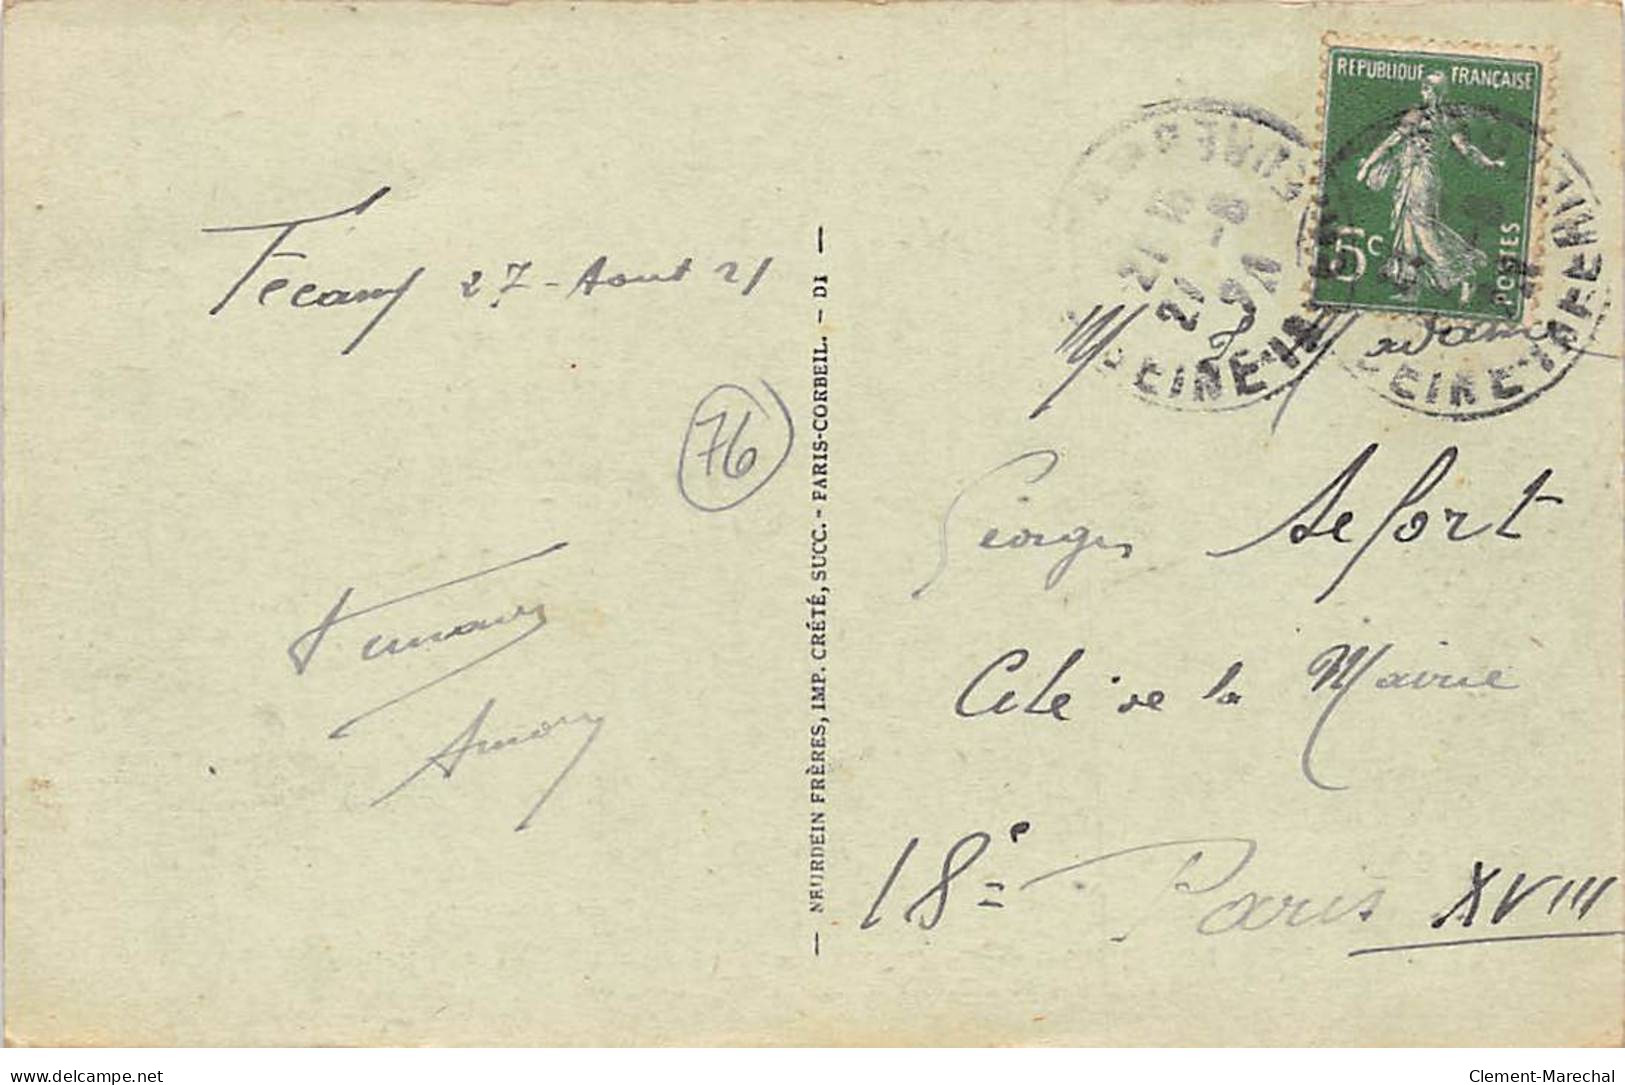 Fécamp 27 - Aout 21
76
Fernand
Amory
— NEURDEIN FRÈRES, IMP. CRÉTÉ, SUCC. - PARIS-CORBEIL. - DI —
REPUBLIQUE FRANÇAISE
5c
POSTES
SEINE-INF
SEINE-INFRE
M
Georges Lefort
Cité de la Mairie
18e Paris XVIII
www.delcampe.net
Clement-Marechal